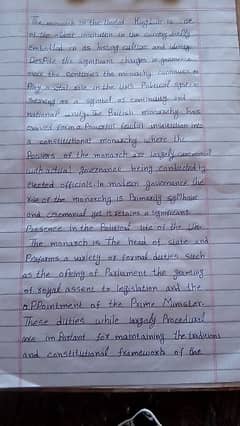 The monarch in the United Kingdom is one
of the oldest institution in the country deeply
embedded in its history culture and identity
Despite the significant changes in governance
over the centuries the monarchy continues to
Play a vital role in the UK's Political system
Serving as a symbol of continuity and
national unity. The British monarchy has
evolved from a Powerful feudal institution into
a constitutional monarchy where the
Powers of the monarch are largely ceremonial
with actual governance being conducted by
elected officials. In modern governance the
role of the monarchy is Primarily symbolic
and ceremonial yet it retains a significant
Presence in the Political life of the UK.
The monarch is the head of state and
Performs a variety of formal duties such
as the opening of Parliament the granting
of royal assent to legislation and the
appointment of the Prime Minister.
These duties while largely Procedural
are important for maintaining the traditions
and constitutional frameworks of the